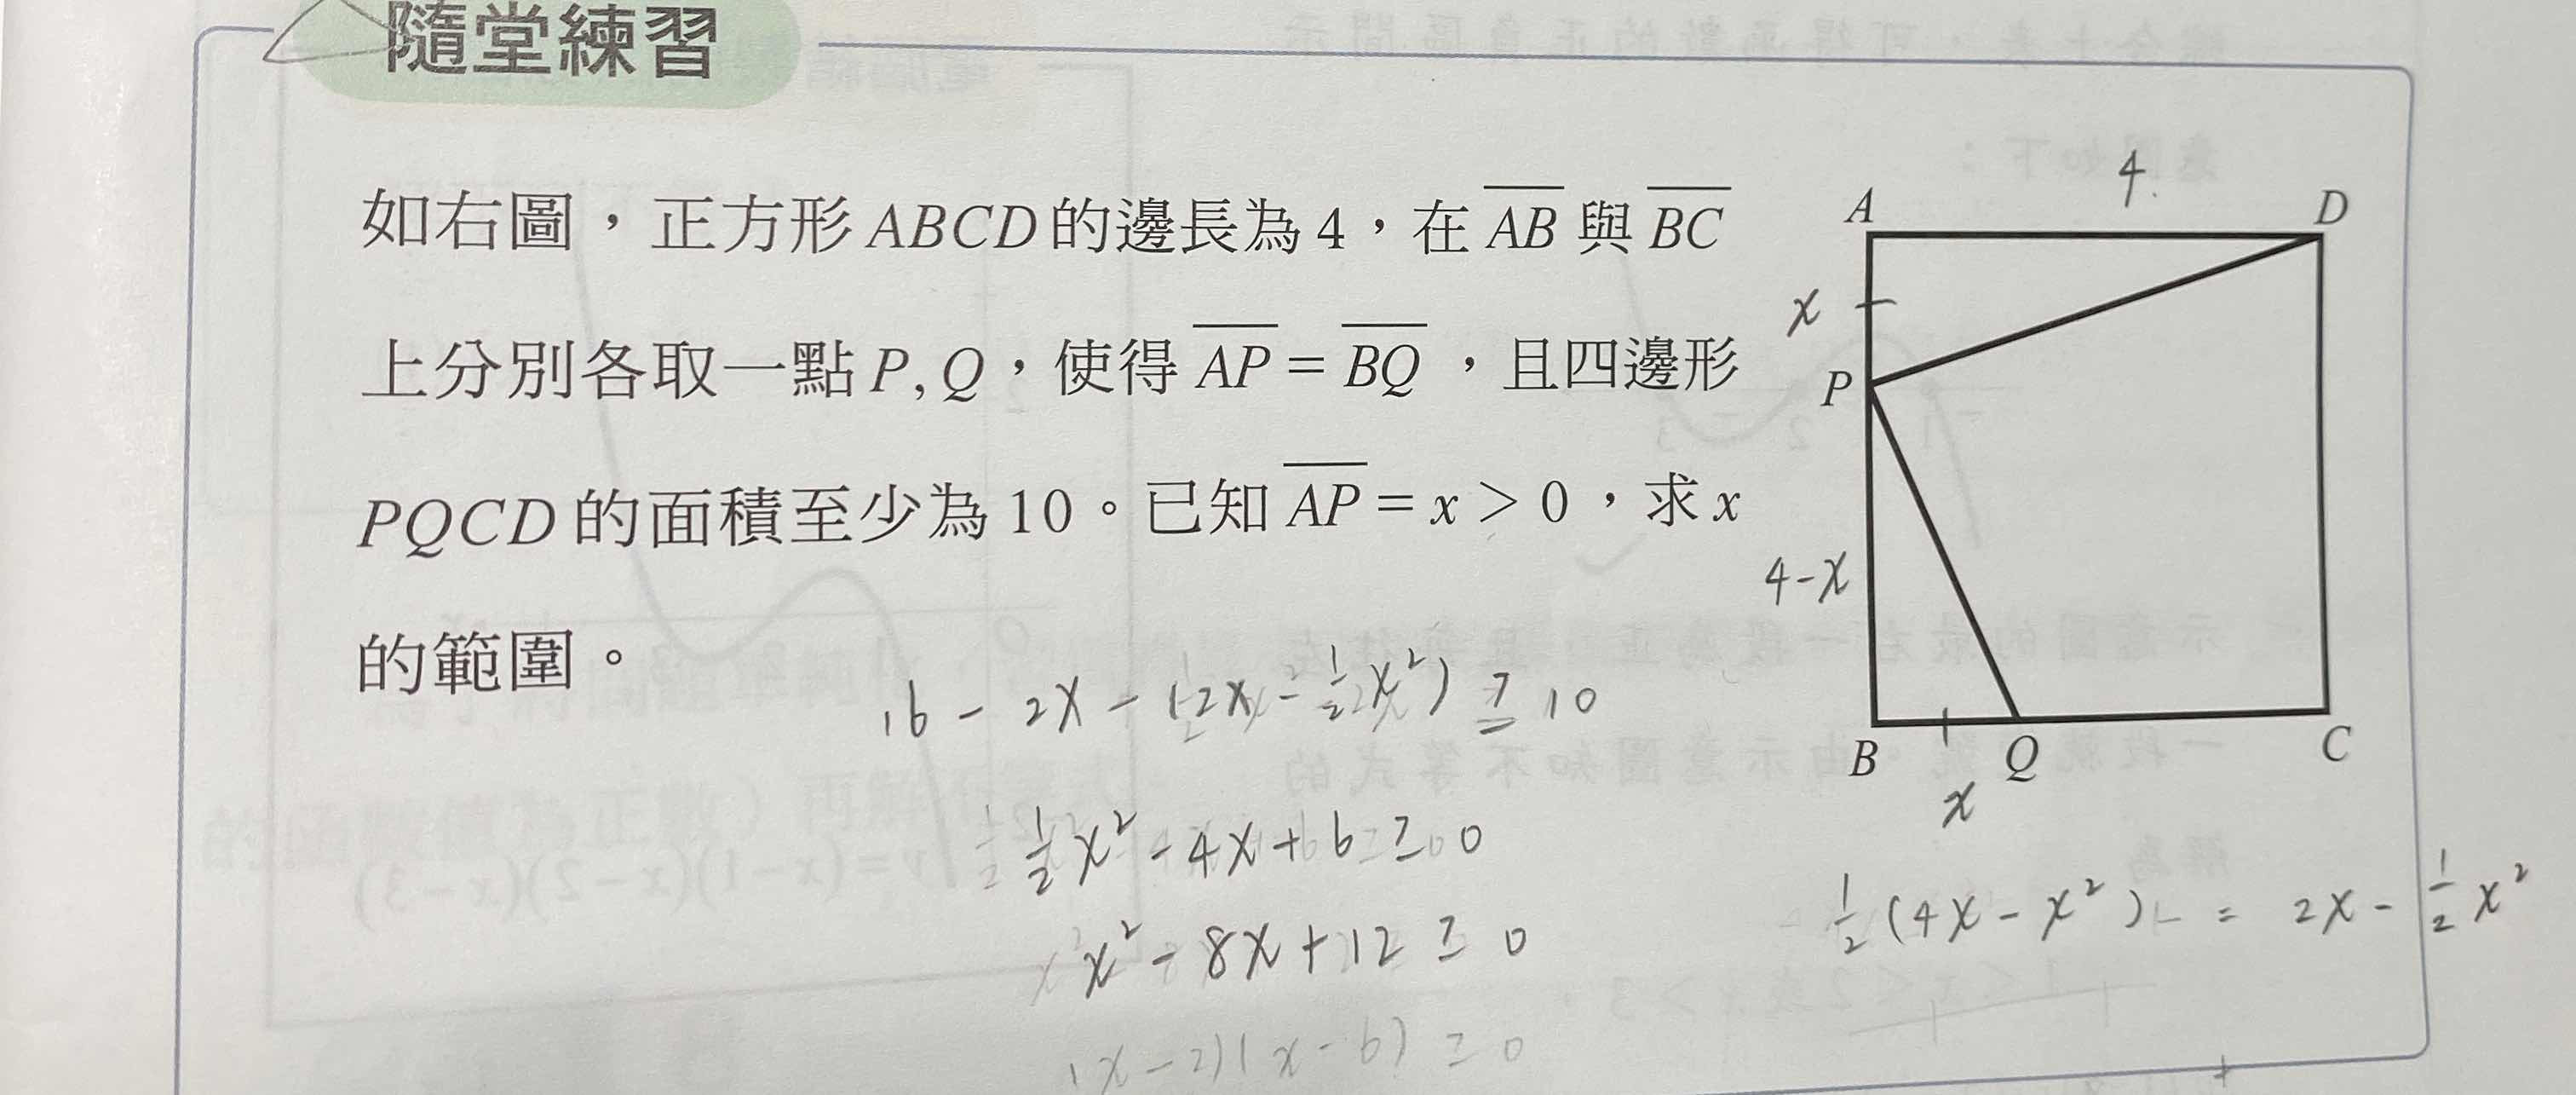 隨堂練習
如右圖，正方形 ABCD 的邊長為 4，在 AB 與 BC
上分別各取一點 P, Q，使得 AP = BQ ，且四邊形
PQCD 的面積至少為 10。已知 AP = x > 0，求 x
的範圍。
4
A
D
x
P
4-x
B
Q
C
x
16 - 2x - (2x - 1/2 x²) ≥ 10
1/2 x² - 4x + 6 ≥ 0
x² - 8x + 12 ≥ 0
(x-2)(x-6) ≥ 0
1/2 (4x - x²) = 2x - 1/2 x²